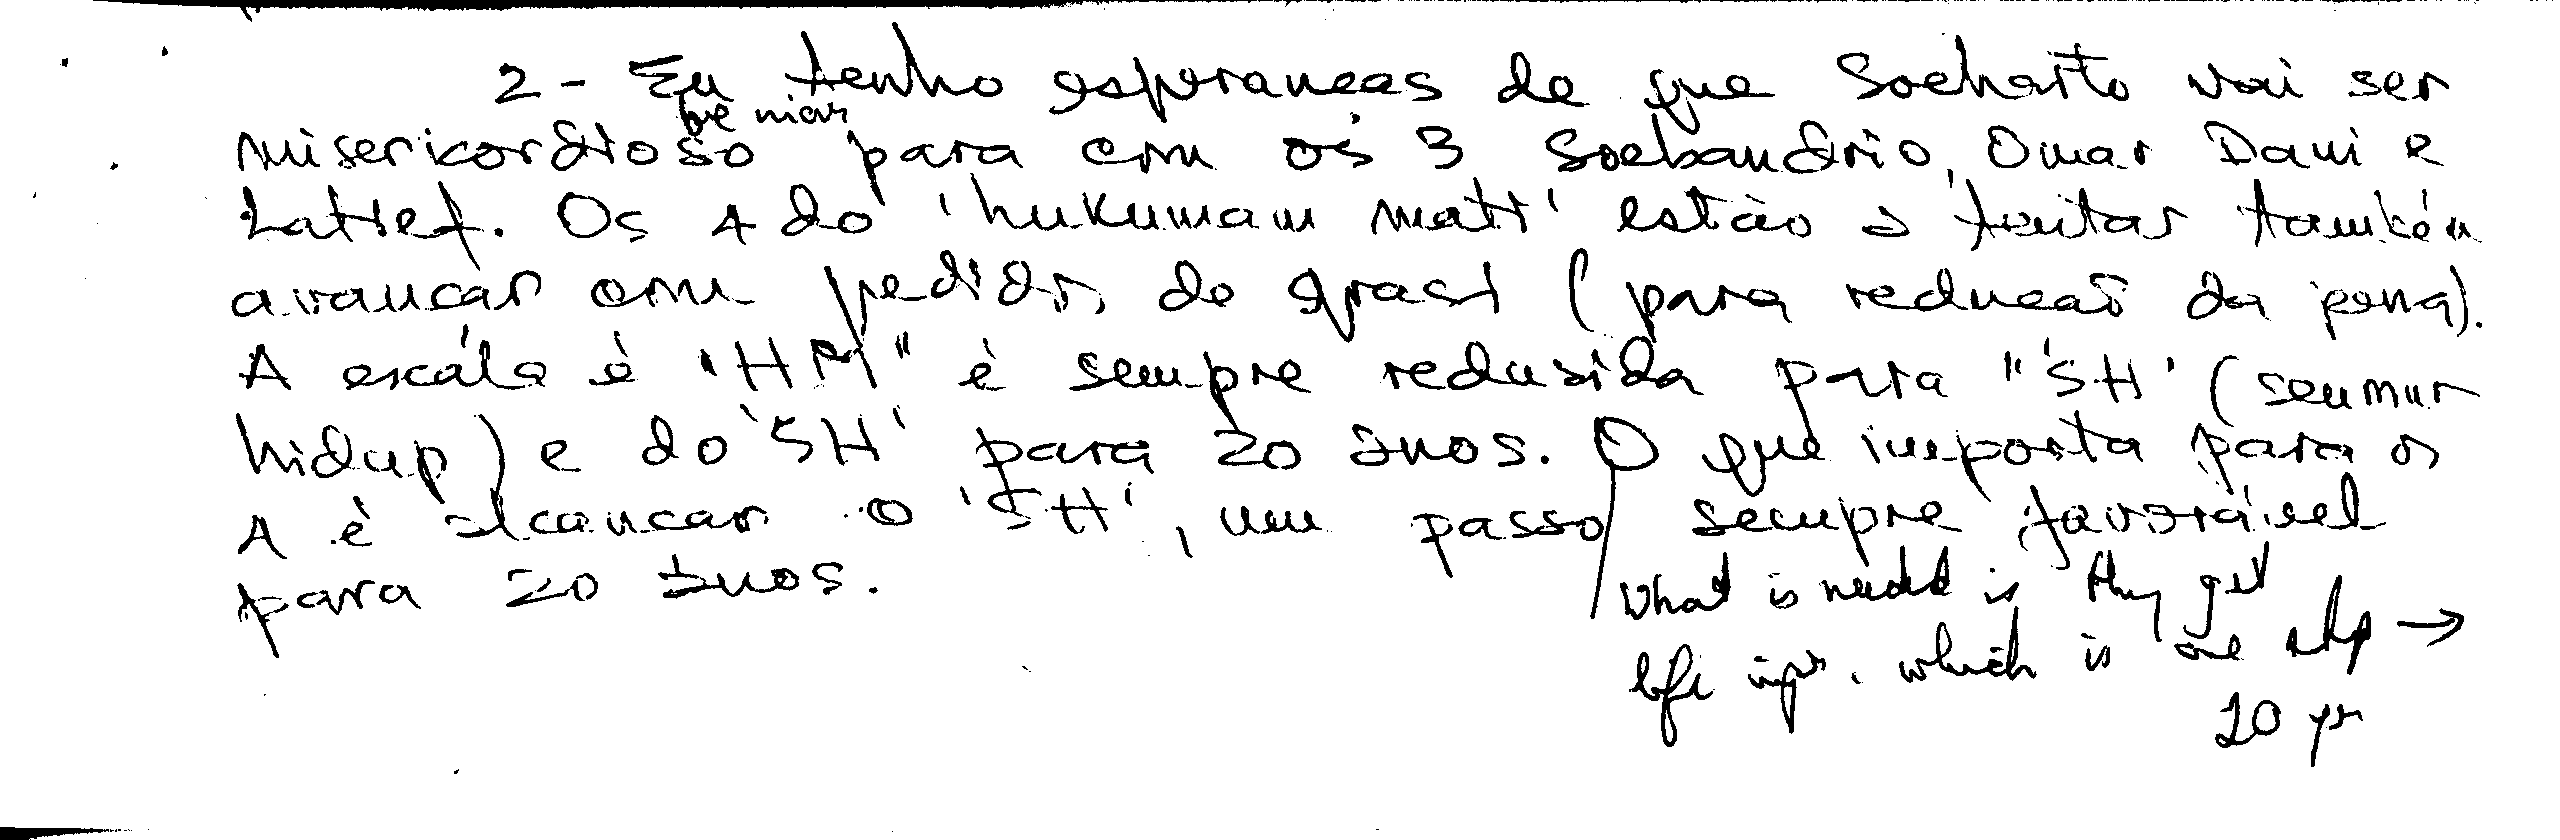 2 - Eu tenho esperancas de que Soeharto vai ser
misericordioso para com os 3 Soebandrio, Omar Dani e
Latief. Os 4 do 'hukuman mati' estão a tentar também
avancar com pedidos de grasi (para reducaõ da pena).
A escála é 'HM" é sempre redusida para "SH' (seumur
hidup) e do 'SH' para 20 anos. O que importa para os
4 é alcancar o 'SH', um passo sempre favorável
para 20 anos.
What is needed is they get
life impr. which is one step →
20 yr